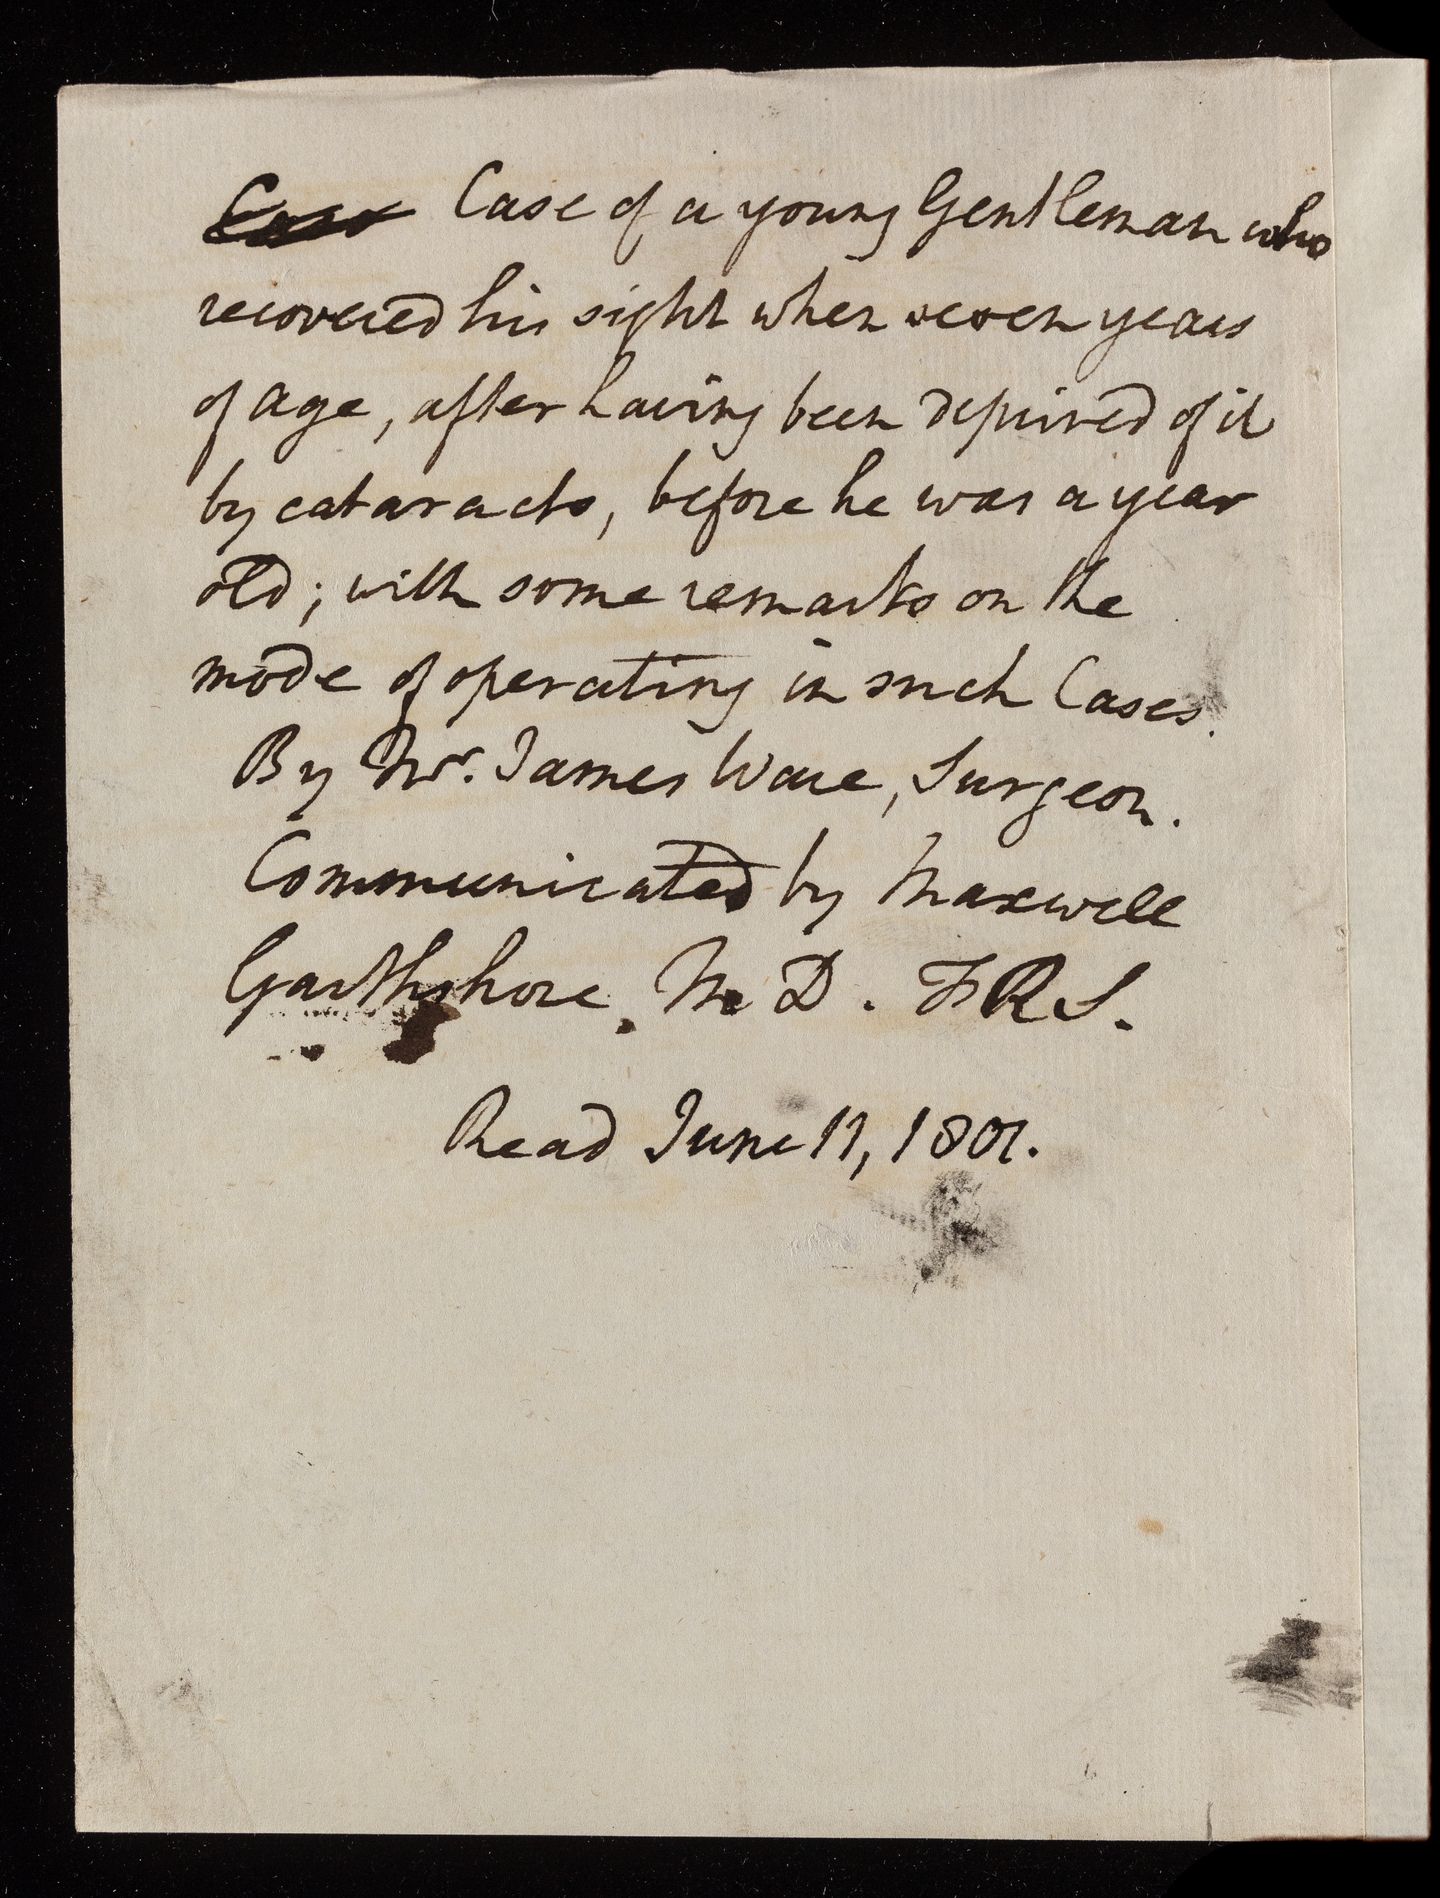 Case Case of a young Gentleman who
recovered his sight when seven years
of age, after having been deprived of it
by cataracts, before he was a year
old; with some remarks on the
mode of operating in such Cases.
By Mr. James Ware, Surgeon.
Communicated by Maxwell
Garthshore. M D. F R S.
Read June 11, 1801.